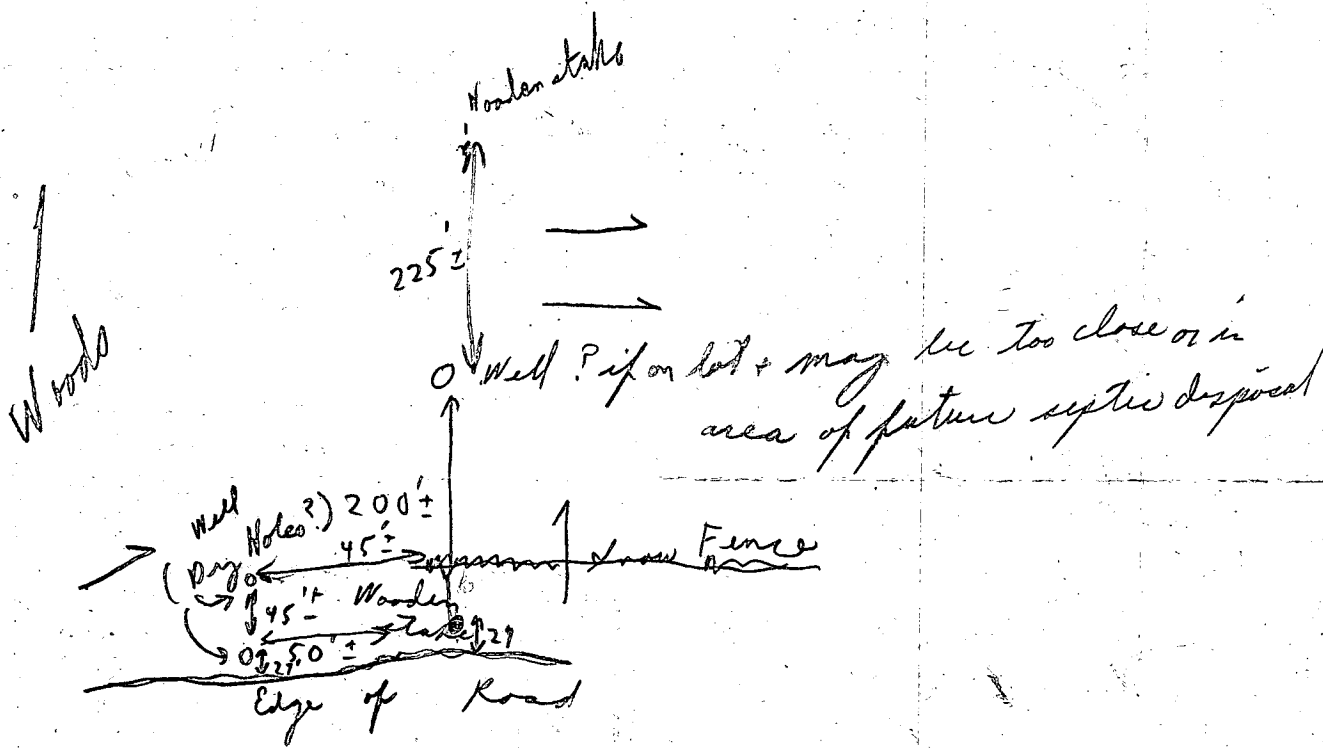 Wooden stake
225'±
Woods
Well ? if on lot + may be too close or in
area of future septic disposal
Well
(Dry Holes?) 200'±
45'±
Snow Fence
45'±
Wooden
stake
50'±
Edge of Road